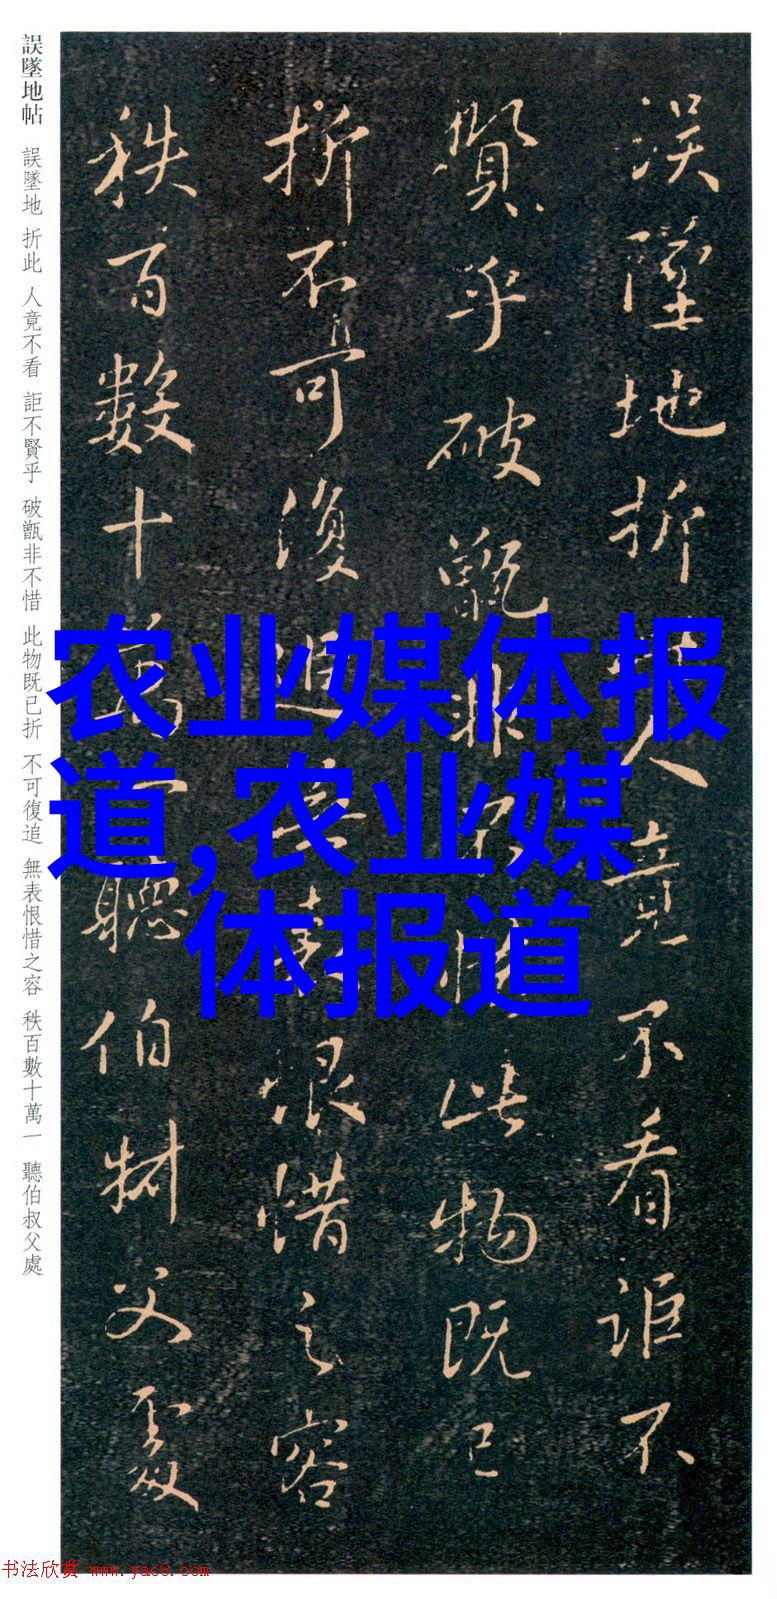 誤墜地折此人竟不看詎不
賢乎破甑非不惜此物既已
折不可復追無表恨惜之容
秩百數十萬一聽伯叔父處
誤墜地帖 誤墜地 折此 人竟不看 詎不賢乎 破甑非不惜 此物既已折 不可復追 無表恨惜之容 秩百數十萬一 聽伯叔父處
农业媒体报
道,农业媒
体报道
书法欣赏 www.yac8.com